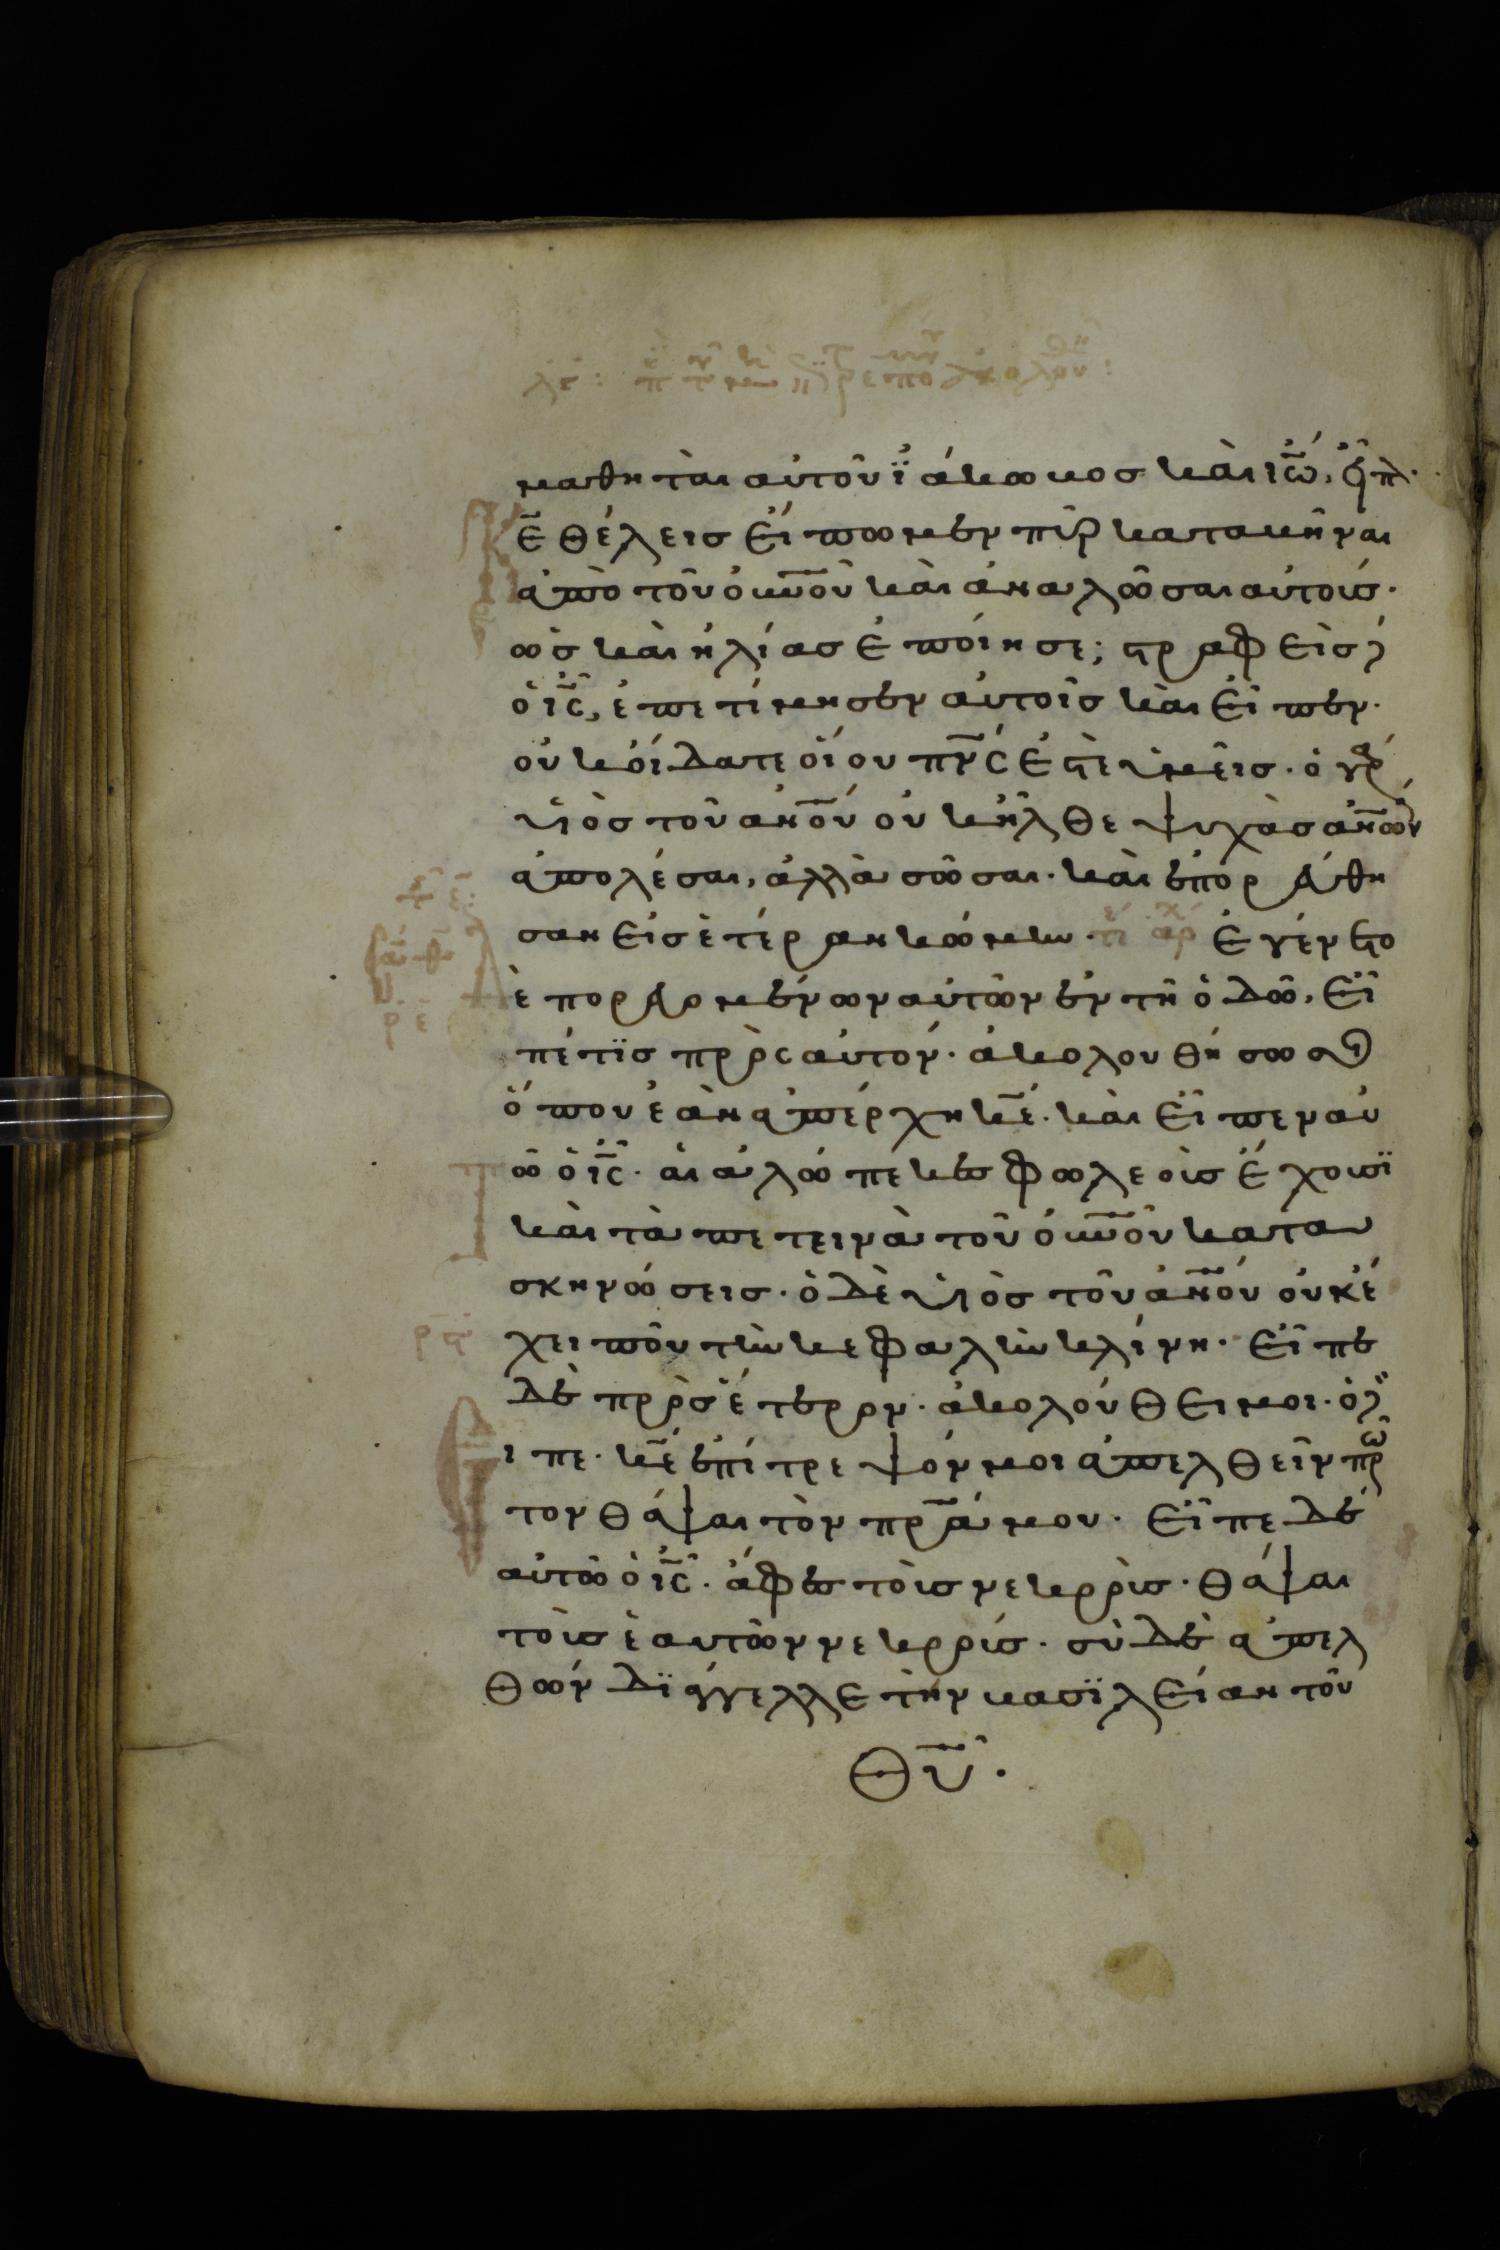 μαθηταὶ αὐτοῦ ϊάκωβος καὶ ἰω̅, εἶπ̀·
κ̅ε̅ θέλεις εἴπωμεν πῦρ καταβῆναι
ἀπὸ τοῦ οὐ̅νοῦ καὶ ἀναλῶσαι αὐτούς·
ὡς καὶ ἠλίας ἐποίησε; στραφεὶς δὲ
ὁ ι̅ς̅, ἐπετίμησεν αὐτοῖς καὶ εἶπεν·
οὐκ οἴδατε οἵου π̅ν̅ς̅ ἐστὲ ὑμεῖς· ὁ γὰρ
υἱὸς τοῦ ἀ̅ν̅ο̅υ̅ οὐκ ἦλθε ψυχὰς ἀ̅ν̅ω̅ν̅
ἀπολέσαι, ἀλλὰ σῶσαι· καὶ ἐπορεύθη
σαν εἰς ἑτέραν κώμην· τέ ἀρχ ἐγένετο
δὲ πορευομένων αὐτῶν ἐν τῆ ὁδῶ, εἶ
πέ τϊς πρὸς αὐτόν· ἀκολουθήσω σοι
ὅπου ἐὰν ἀπέρχη κ̅ε̅· καὶ εἶπεν αὐ
τῶ ὁ ι̅ς̅· αἱ ἀλώπεκες φωλεοὺς ἔχουσϊ
καὶ τὰ πετεινὰ τοῦ οὐ̅νοῦ κατα
σκηνώσεις· ὁ δὲ υἱὸς τοῦ ἀ̅ν̅ο̅υ̅ οὐκ ἔ
χει ποῦ τὴν κεφαλὴν κλίνη· εἶπε
δὲ πρὸς ἕτερον· ἀκολούθει μοι· ὁ δὲ
εἶπε· κ̅ε̅ ἐπίτρεψόν μοι ἀπελθεῖν πρῶ
τον θάψαι τὸν π̅ρ̅α̅ μου· εἶπε δὲ
αὐτῶ ὁ ι̅ς̅· ἄφες τοὺς νεκροὺς· θάψαι
τοὺς ἑαυτῶν νεκρούς· σὺ δὲ ἀπελ
θὼν δϊάγγελλε τὴν βασϊλείαν τοῦ
θ̅υ̅·